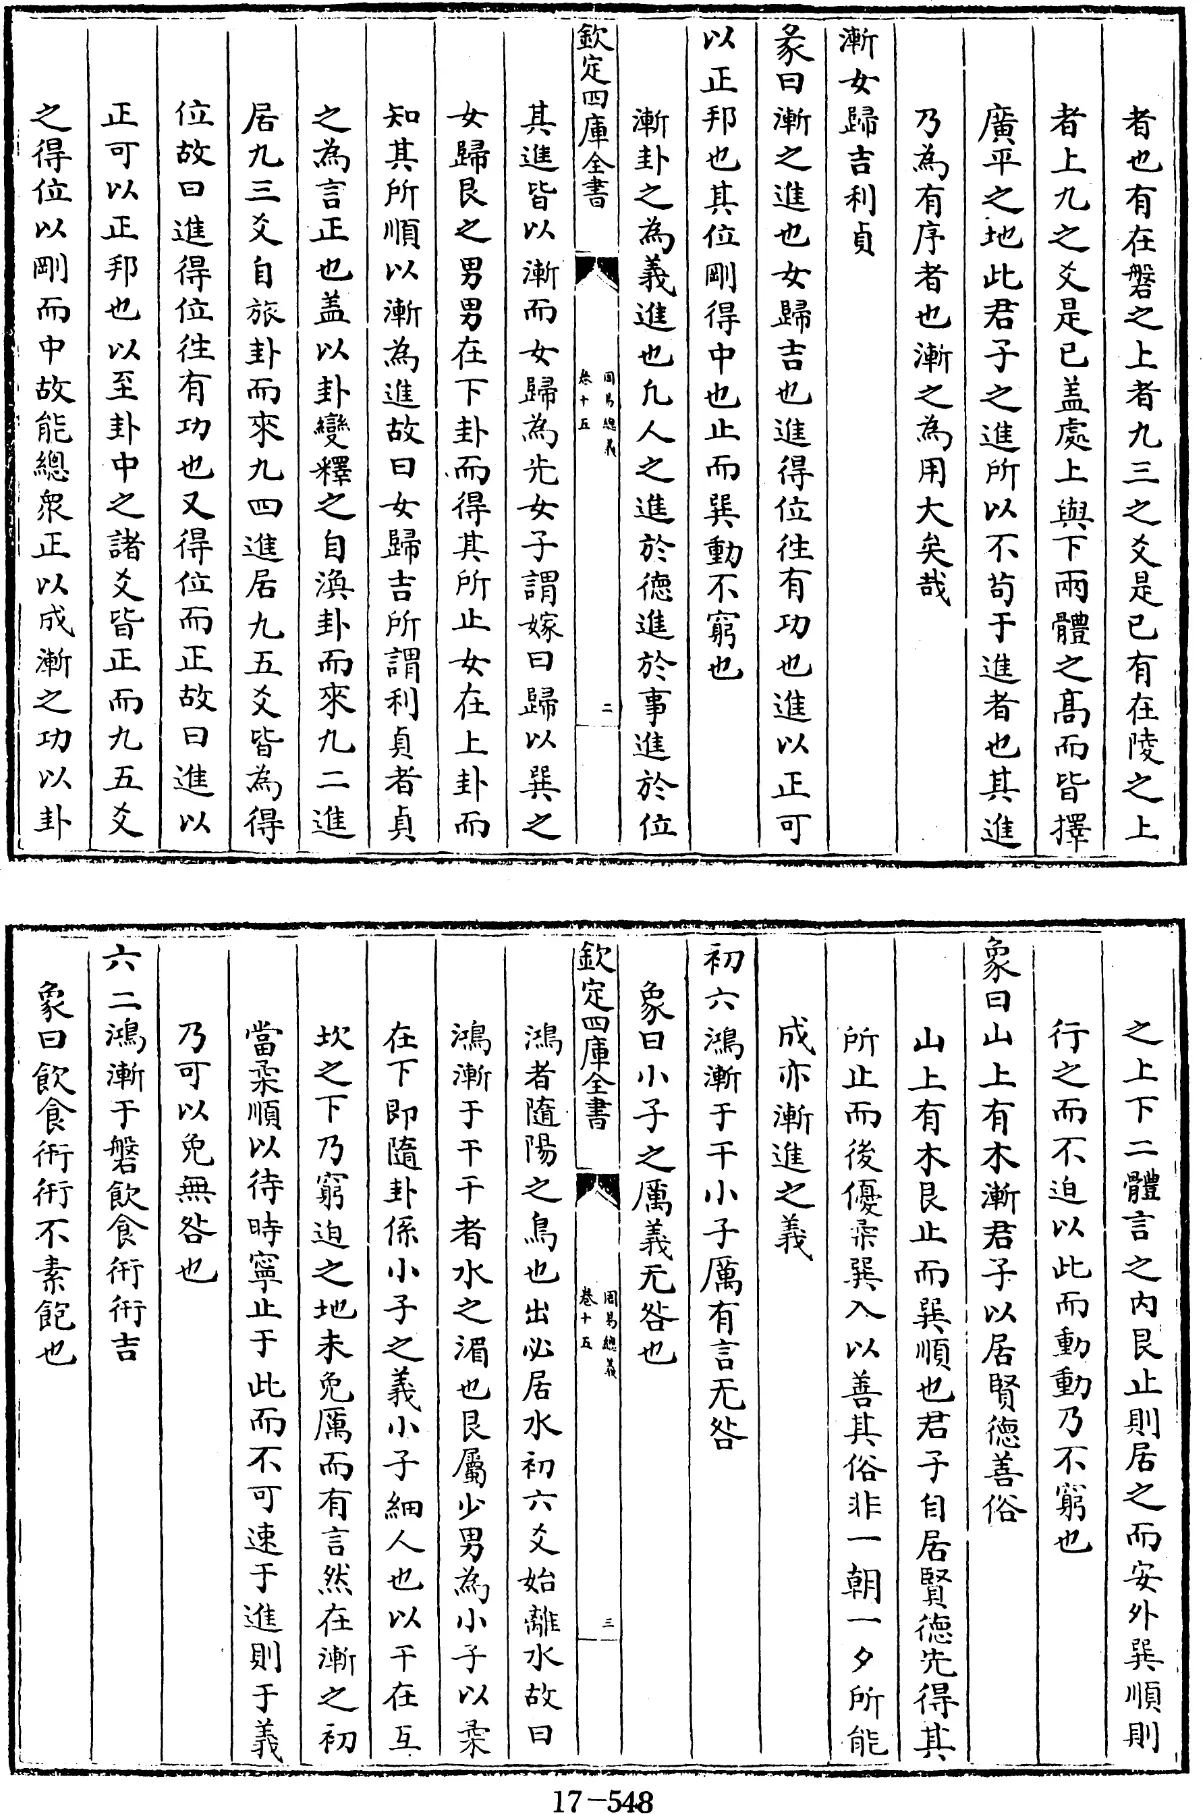 者也有在磐之上者九三之爻是已有在陵之上
者上九之爻是已盖處上與下兩體之髙而皆擇
廣平之地此君子之進所以不苟于進者也其進
乃為有序者也漸之為用大矣哉
漸女歸吉利貞
彖曰漸之進也女歸吉也進得位徃有功也進以正可
以正邦也其位剛得中也止而巽動不窮也
漸卦之為義進也凡人之進於德進於事進於位
欽定四庫全書
周易總義
卷十五
二
其進皆以漸而女歸為先女子謂嫁曰歸以巽之
女歸艮之男男在下卦而得其所止女在上卦而
知其所順以漸為進故曰女歸吉所謂利貞者貞
之為言正也盖以卦變釋之自渙卦而來九二進
居九三爻自旅卦而來九四進居九五爻皆為得
位故曰進得位徃有功也又得位而正故曰進以
正可以正邦也以至卦中之諸爻皆正而九五爻
之得位以剛而中故能總衆正以成漸之功以卦
之上下二體言之内艮止則居之而安外巽順則
行之而不迫以此而動動乃不窮也
象曰山上有木漸君子以居賢德善俗
山上有木艮止而巽順也君子自居賢德先得其
所止而後優柔巽入以善其俗非一朝一夕所能
成亦漸進之義
初六鴻漸于干小子厲有言无咎
象曰小子之厲義无咎也
欽定四庫全書
周易總義
卷十五
三
鴻者隨陽之鳥也出必居水初六爻始離水故曰
鴻漸于干干者水之湄也艮屬少男為小子以柔
在下即隨卦係小子之義小子細人也以干在互
坎之下乃窮迫之地未免厲而有言然在漸之初
當柔順以待時寧止于此而不可速于進則于義
乃可以免無咎也
六二鴻漸于磐飲食衎衎吉
象曰飲食衎衎不素飽也
17-548